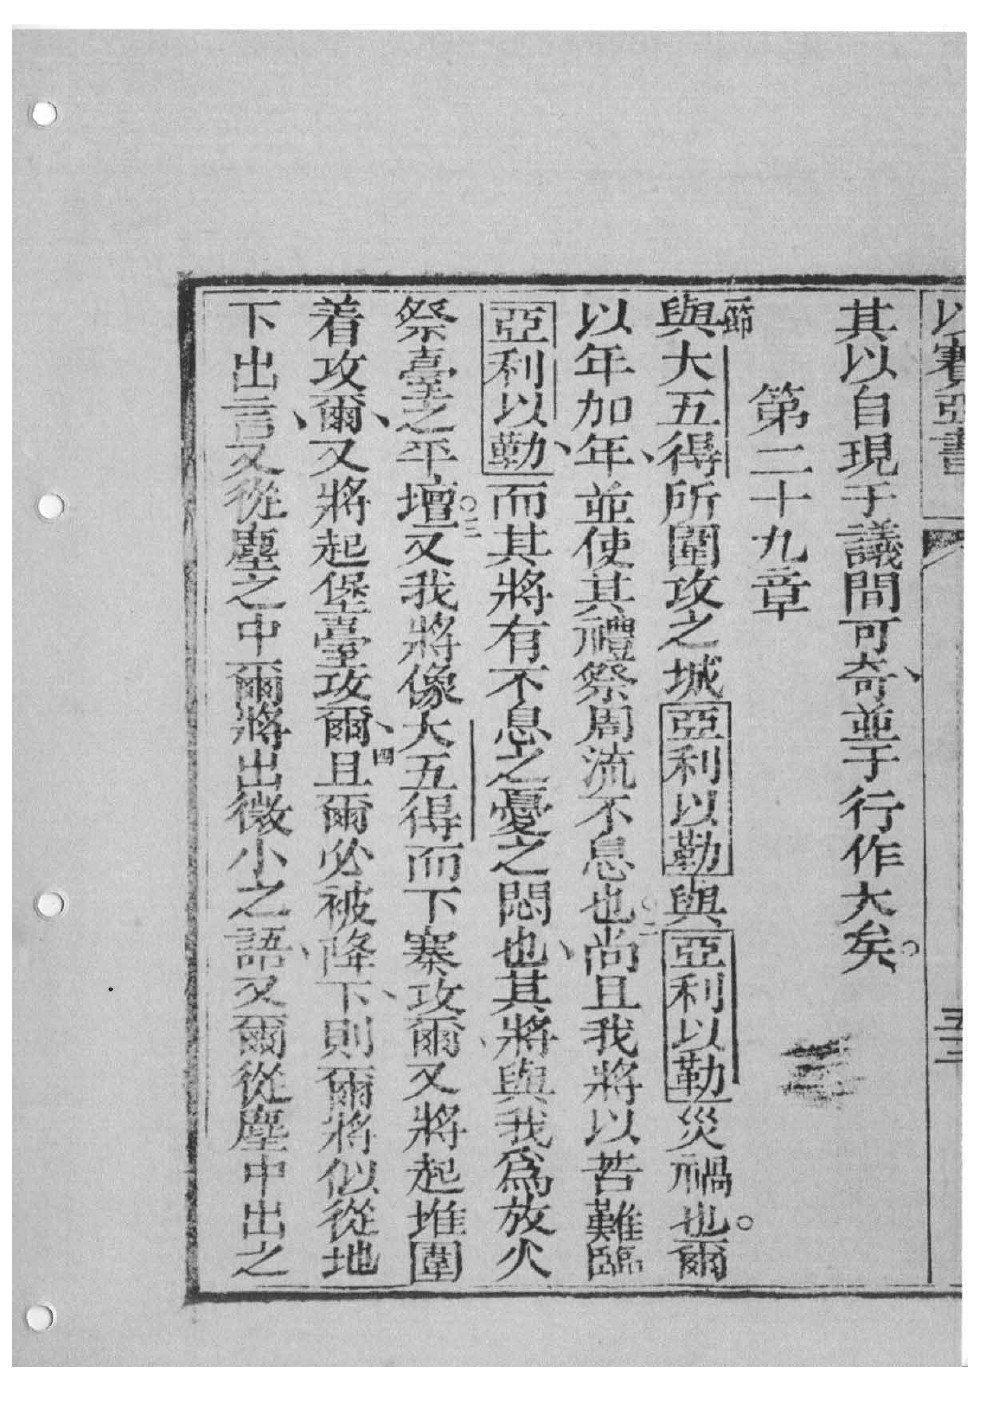 以賽亞書
五三
其以自現于議問可奇、並于行作大矣。
第二十九章
一節與大五得所圍攻之城亞利以勒與亞利以勒災禍也。爾
以年加年、並使其禮祭周流不息也。二尚且我將以苦難臨
亞利以勒、而其將有不息之憂之悶也、其將與我為放火
祭臺之平壇。三又我將像大五得而下寨攻爾、又將起堆圍
着攻爾、又將起堡臺攻爾、四且爾必被降下、則爾將似從地
下出言、又從塵之中爾將出微小之語、又爾從塵中出之